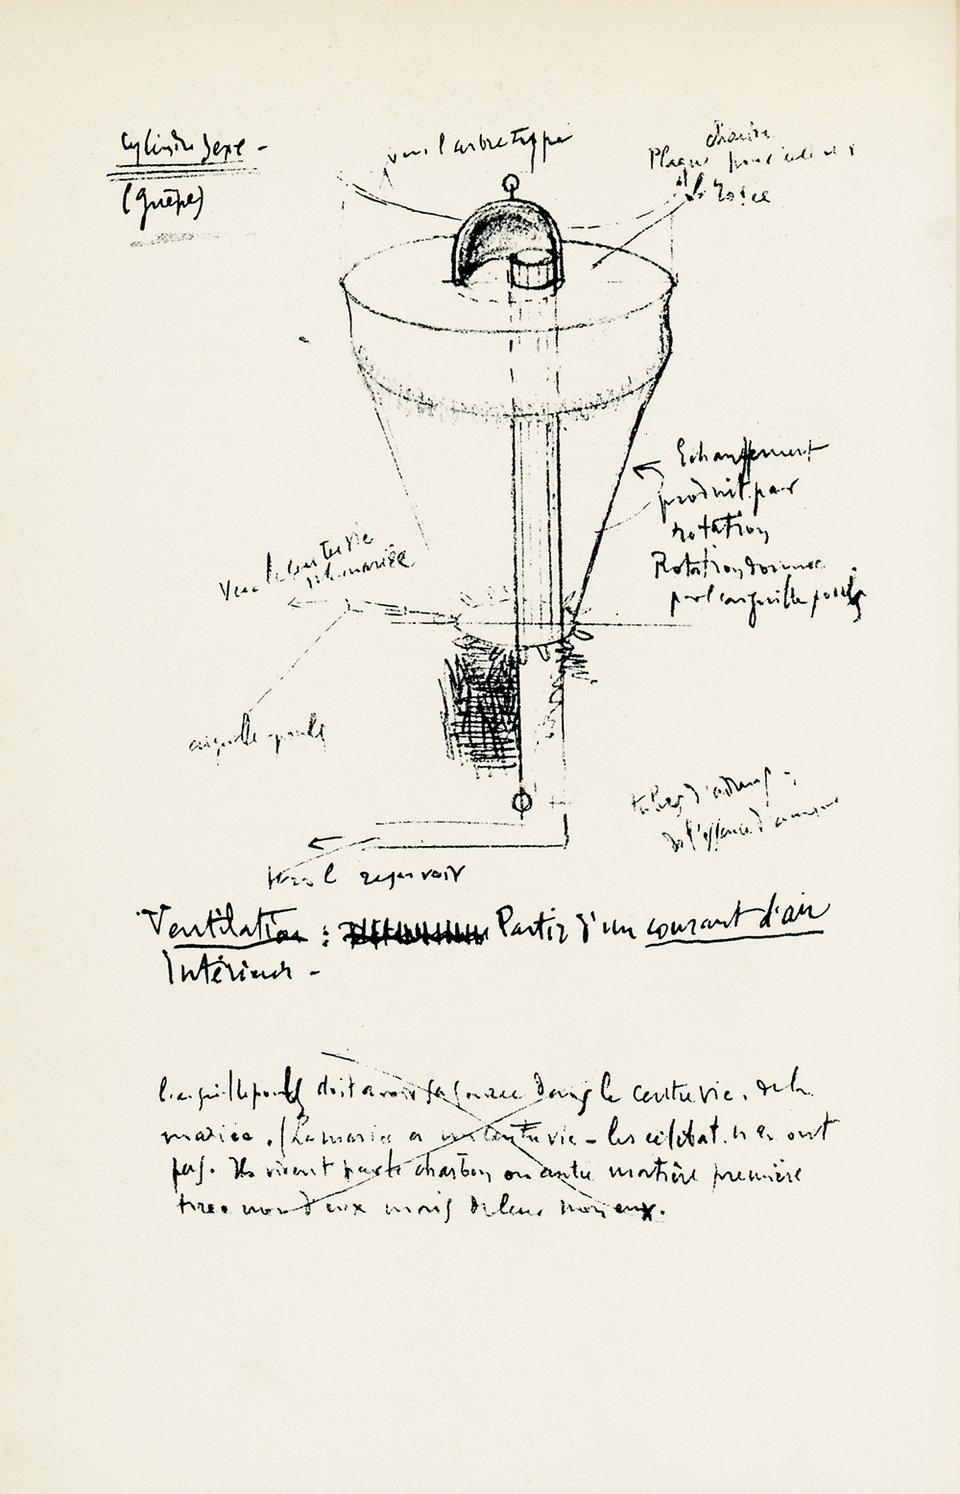 Cylindre sexe -
(guêpe)
vers l'arbre type
Plaque
Echauffement
produit par
rotation
Rotation donnée
par l'aiguille pouls
Vers la centuvie
de la mariée
aiguille-pouls
de l'essence d'amour
vers le réservoir
Ventilation : Partir d'un courant d'air
Intérieur -
L'aiguille pouls doit avoir sa source dans la centuvie de la
mariée. (La mariée a un centuvie - les célibat. n'en ont
pas. Ils vivent par le charbon ou autre matière première
tirée non d'eux mais de leur non eux.